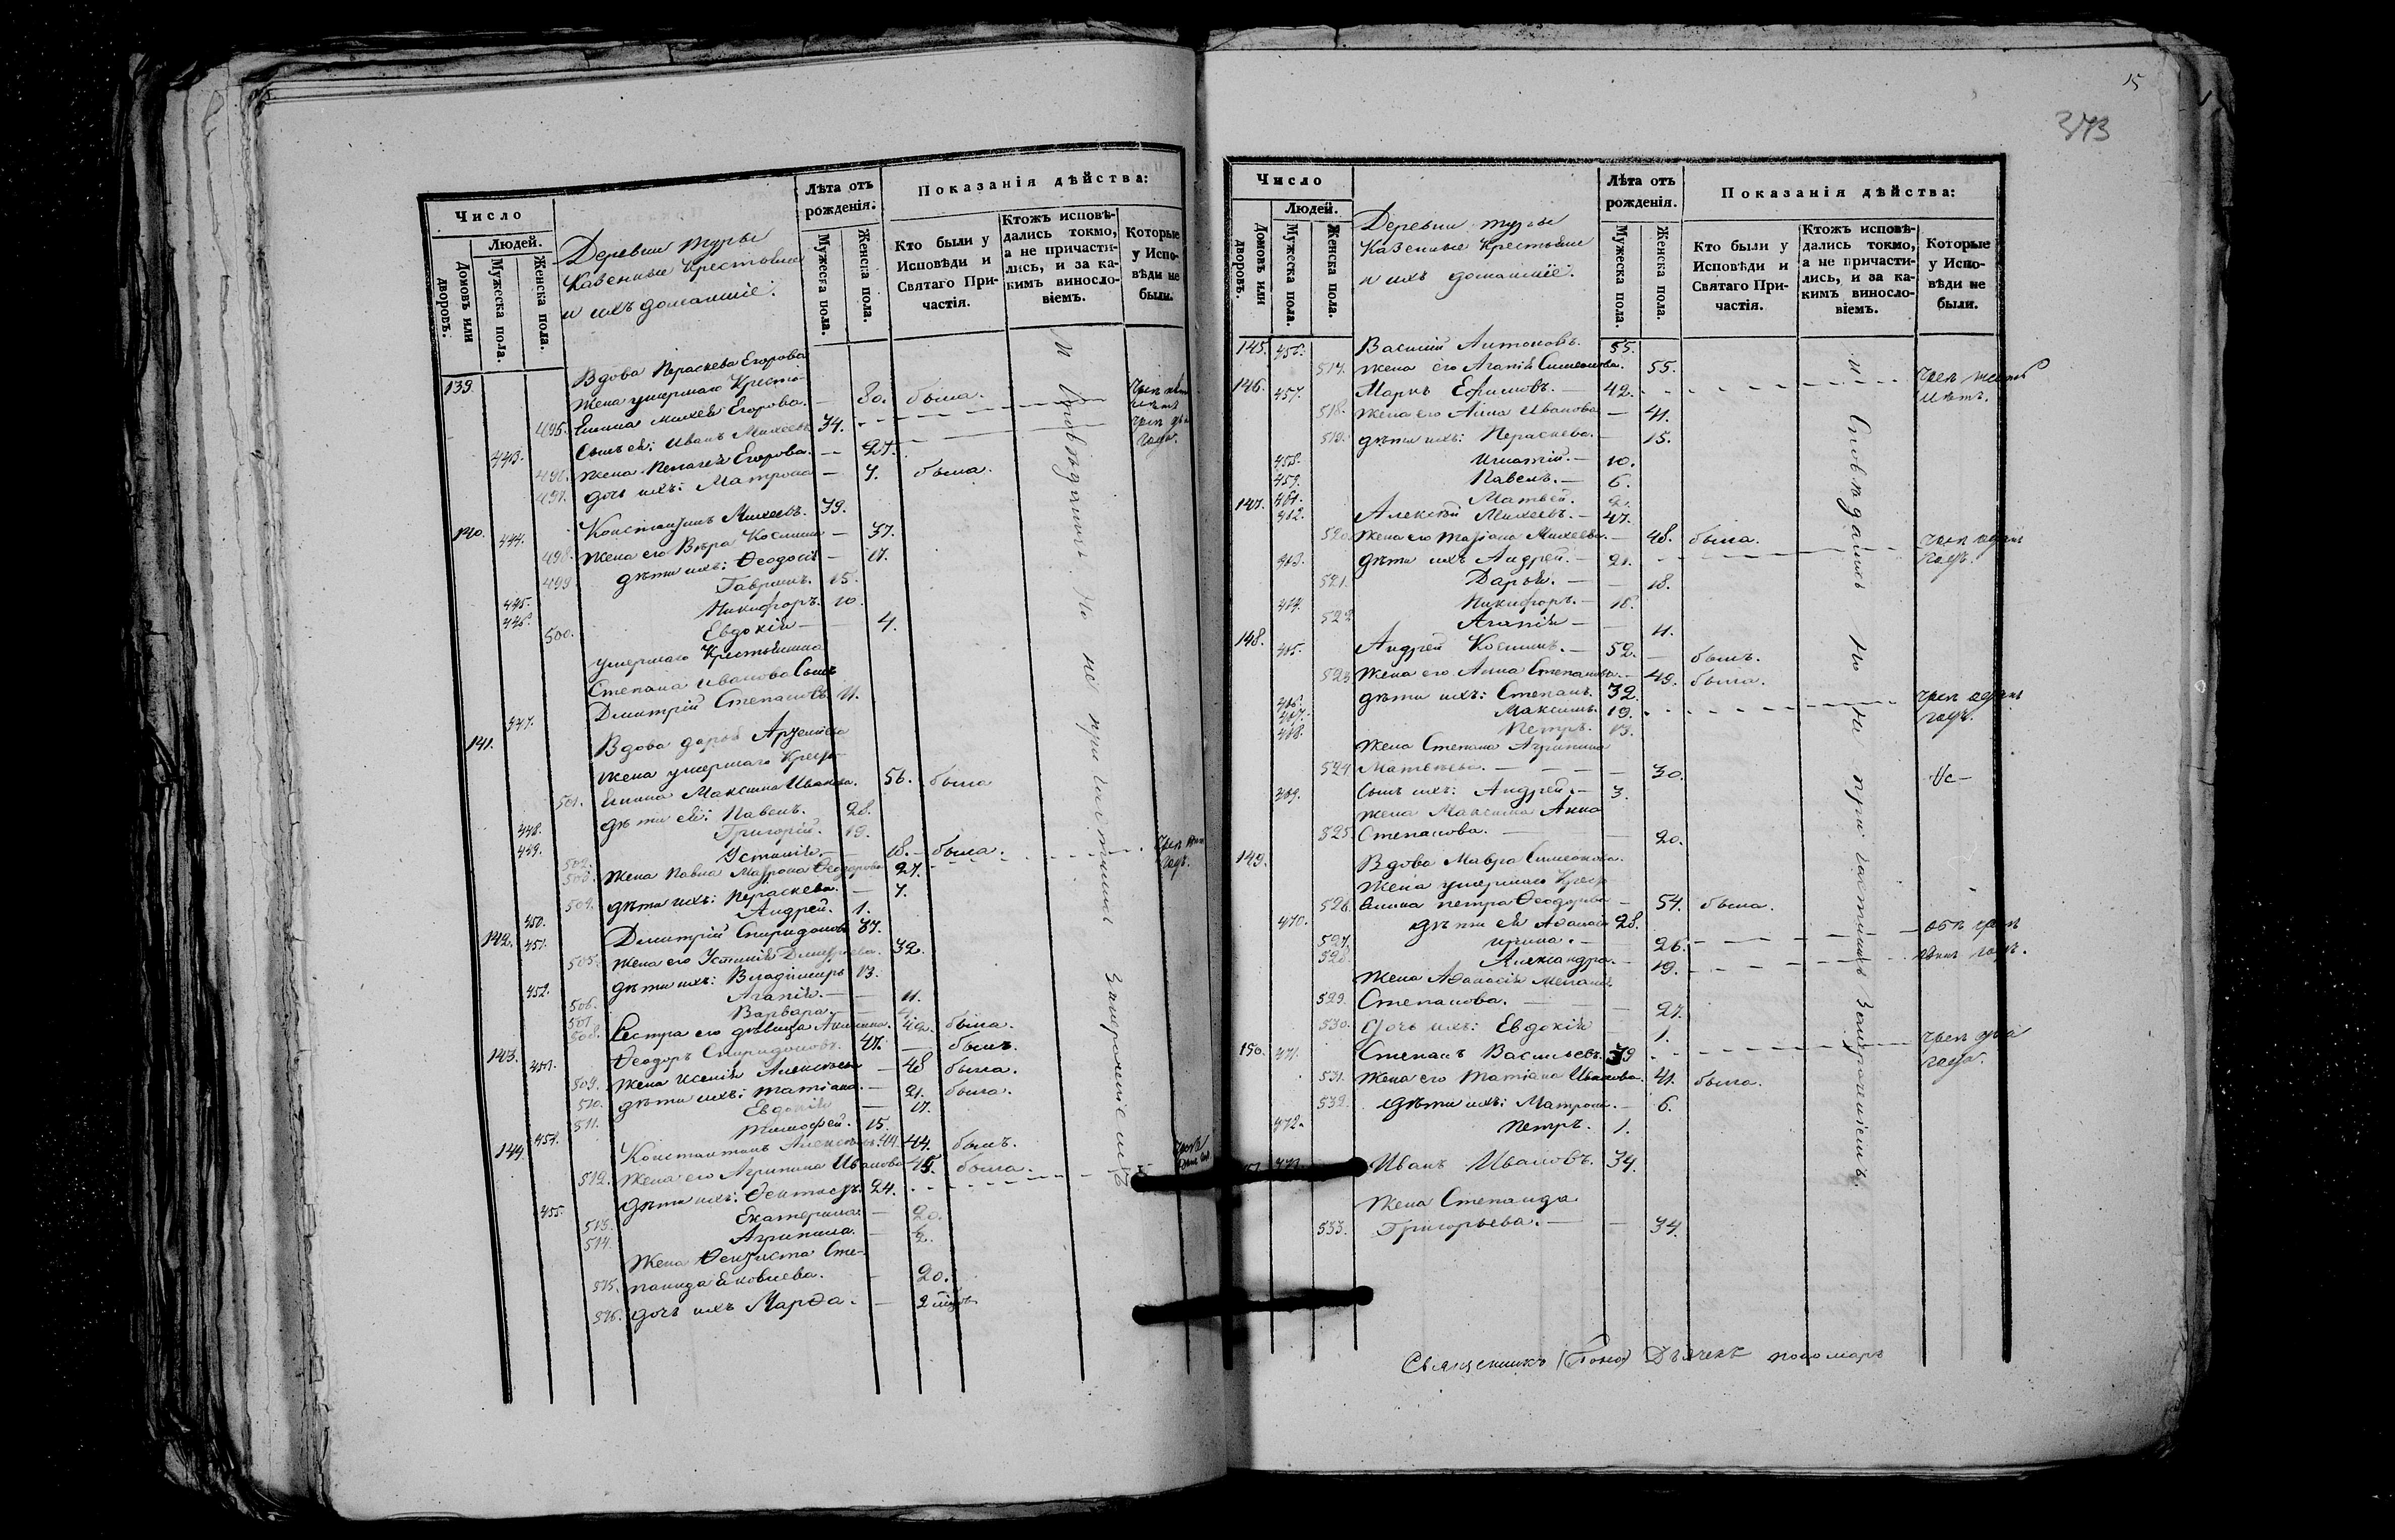 Число
Людей.
Домовъ или дворовъ.
Мужеска пола.
Женска пола.
Деревни Туры
Казенные Крестьяне
и ихъ домашніе.
Лѣта отъ рожденія.
Мужеска пола.
Женска пола.
Показанія дѣйства:
Кто были у Исповѣди и Святаго Причастія.
Ктожъ исповѣдались токмо, а не причастились, и за какимъ винословіемъ.
Которые у Исповѣди не были.
139. Вдова Параскева Егорова
жена умершаго Крестья-
495. Михея Егорова. — 80. была.
443. Сынъ ея: Иванъ Михеевъ 34.
496. жена Пелагея Егорова. — 27.
497. дочь ихъ: Матрона — 7. была.
140. 444. Константинъ Михеевъ. 39.
498. жена его Вѣра Космина — 37.
499. дѣти ихъ: Ѳеодосія — 17.
445. Гавріилъ. 15.
446. Никифоръ. 10.
500. Евдокія — 4.
умершаго Крестьянина
Степана Иванова Сынъ
447. Димитрій Степановъ 11.
141. Вдова Дарья
жена умершаго Крест-
501. Максима Иванова. 56. была
448. дѣти ея: Павелъ. 28.
449. Григорій. 19.
502. Устинія — 18. — была.
503. жена Павла Матрона Ѳеодорова 27.
504. дѣти ихъ: Параскева. — 7.
450. Андрей. 1.
142. 451. Димитрій Спиридоновъ 37.
505. жена его Устинія Димитріева. 32.
452. дѣти ихъ: Владиміръ 13.
506. Агапія. — 11.
507. Варвара. — 4.
508. Сестра его дѣвица 42. была.
143. 453. Ѳеодоръ Спиридоновъ. 47. — былъ.
509. жена Ксенія Алексѣева — 48 была.
510. дѣти ихъ: Татіана. — 21. была.
511. Евдокія — 17.
454. Тимоѳей. 15.
144. Константинъ Алексѣевъ 44. былъ.
512. жена его Агрипина Иванова 45. была.
455. дѣти ихъ: Ѳеоктистъ. 24.
513. Екатерина. — 20.
514. Агрипина. — 2.
жена Ѳеоктиста Сте-
515. панида Яковлева. — 20.
516. дочь ихъ Марѳа. — 2
Исповѣдались но не причастились за
15
373
Число
Людей.
Домовъ или дворовъ.
Мужеска пола.
Женска пола.
Деревни Туры
Казенные Крестьяне
и ихъ домашніе.
Лѣта отъ рожденія.
Мужеска пола.
Женска пола.
Показанія дѣйства:
Кто были у Исповѣди и Святаго Причастія.
Ктожъ исповѣдались токмо, а не причастились, и за какимъ винословіемъ.
Которые у Исповѣди не были.
145. 456. Василій Антоновъ. 55.
517. жена его Агапія Симеонова. 55.
146. 457. Маркъ Ефимовъ. 42.
518. жена его Анна Иванова — 41.
519. дѣти ихъ: Параскева. — 15.
458. Игнатій. — 10.
459. Павелъ. — 6.
461. Матвей. 2.
147. 462. Алексѣй Михеевъ. — 47.
520. жена его Татіана Михеева. — 48. была.
463. дѣти ихъ Андрей. — 21.
521. Дарья. — 18.
464. Никифоръ. — 18.
522 Агапія — 11.
148. 465. Андрей Косминъ. — 52. — былъ.
523 жена его Анна Степанова. — 49. была.
466. дѣти ихъ: Степанъ. 32.
467. Максимъ. 19.
468. Петръ. 13.
жена Степана Агрипина
524 Матвеева. — 30.
469. Сынъ ихъ: Андрей. — 3.
жена Максима Анна
525. Степанова. — 20.
149. Вдова Мавра Симеонова.
жена умершаго Крест-
526. янина Петра Ѳеодорова — 54. была.
470. дѣти ея Аѳанасій 28.
527. Ирина. — 26.
528. Александра. — 19.
жена Аѳанасія
529. Степанова. — 27.
530. Дочь ихъ: Евдокія — 1.
150. 471. Степанъ Васильевъ. 39
531. жена его Татіана Иванова. 41. была.
532. дѣти ихъ: Матрона. — 6.
472. Петръ. 1.
473. Иванъ Ивановъ. 34.
жена Степанида
533. Григорьева. — 34.
Исповѣдались но не причастились
Священникъ Дьячекъ пономарь